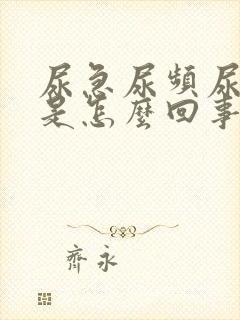 尿急尿頻尿
是怎麼回事
齊永